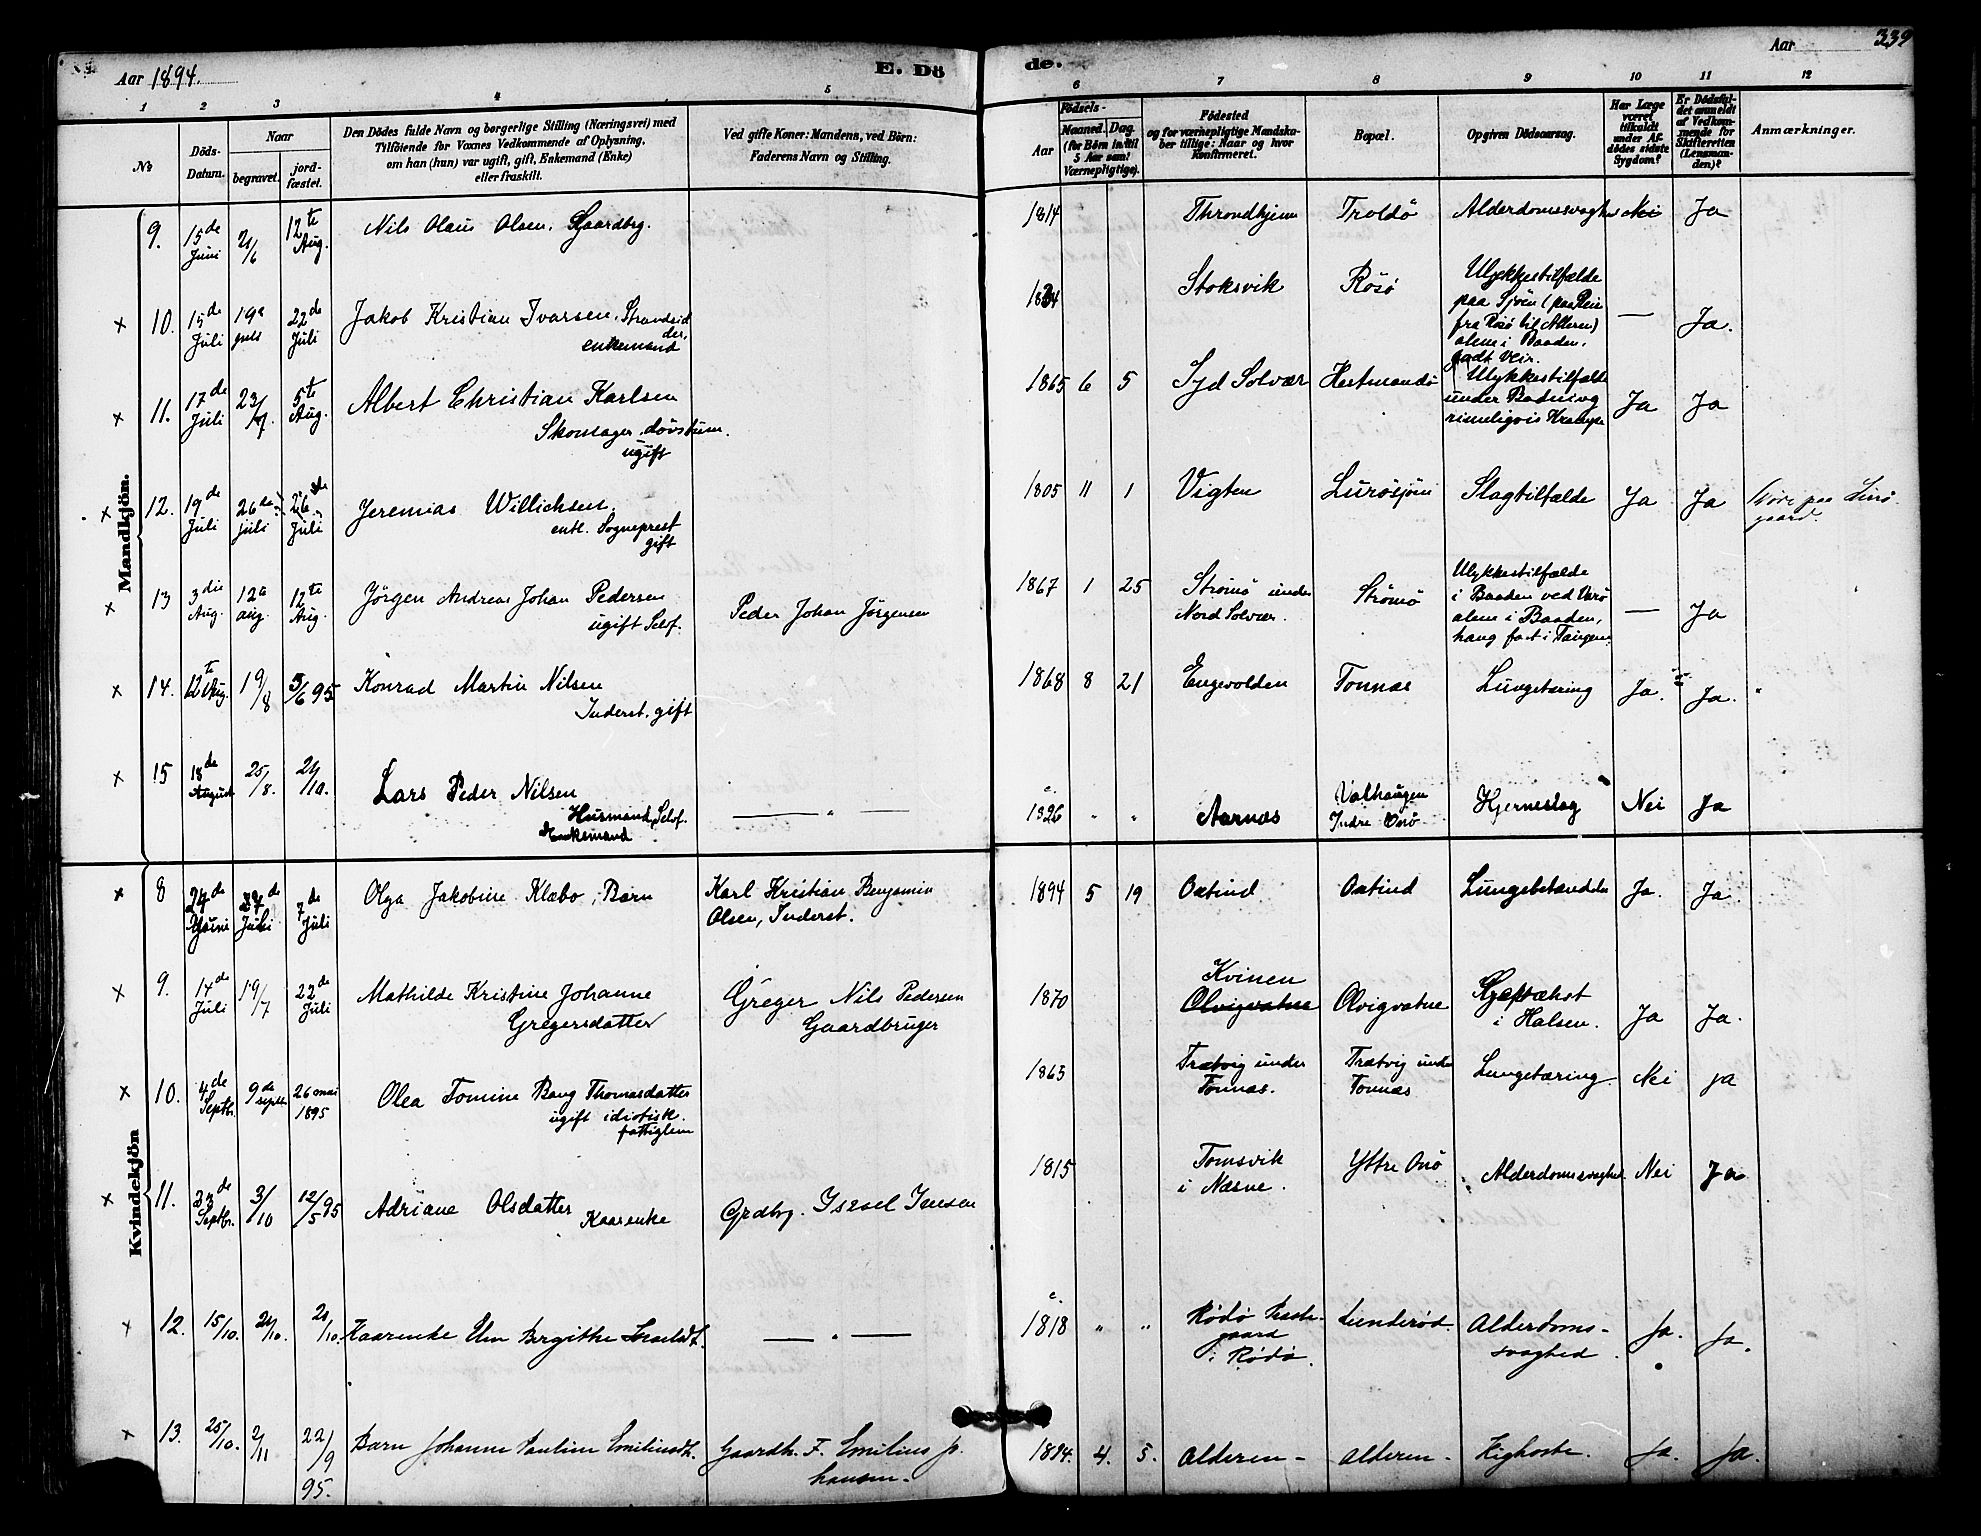 Aar 1894.
E. Dö
de.
Aar
339
1 2 3 4 5 6 7 8 9 10 11 12
No
Döds-
Datum.
Naar
begravet.
jord-
fæstet.
Den Dödes fulde Navn og borgerlige Stilling (Næringsvei) med
Tilföiende for Voxnes Vedkommende af Oplysning,
om han (hun) var ugift, gift, Enkemand (Enke)
eller fraskilt.
Ved gifte Koner: Mandens, ved Börn:
Faderens Navn og Stilling.
Födsels-
Aar
Maaned. Dag.
(for Börn indtil
5 Aar samt
Værnepligtige).
Födested
og for værnepligtige Mandska-
ber tillige: Naar og hvor
Konfirmeret.
Bopæl.
Opgiven Dödsaarsag.
Har Læge
været
tilkaldt
under Af-
dødes sidste
Sygdom?
Er Dödsfal-
det anmeldt
af Vedkom-
mende for
Skifteretten
(Lensman-
den)?
Anmærkninger.
Mandkjön.
9. 15de Juni 21/6 12te Aug. Nils Olaus Olsen, Gaardbrg. 1814 Throndhjem Troldö Alderdomssvaghed Nei Ja
× 10. 15de Juli 19de juli 22de Juli Jakob Kristian Ivarsen, Strandsidder, enkemand Stoksvik Rösö Ulykkestilfælde
paa Sjøen (paa Reise
fra Rösö til Alderen)
alene i Baaden,
godt Veir. — Ja.
× 11. 17de Juli 23/7. 5te Aug. Albert Christian Karlsen
Skomager, døvstum.
ugift
1865 6 5 Syd Solvær Hestmandö Ulykkestilfælde
under Badning
rimeligvis Krampe Ja Ja
× 12. 19de Juli 26de juli 26de Juli Jeremias Willichsen,
entl. Sogneprest
gift
1805 11 1 Vigten Lurösjöen Slagtilfælde Ja Ja paa Lurö
gaard.
× 13 3die Aug. 12te aug. 12te Aug. Jörgen Andreas Johan Pedersen
ugift Selvf.
Peder Johan Jörgensen
1867 1 25 Strömö under
Nord Solvær. Strömö Ulykkestilfælde
i Baaden ved
alene i Baaden,
hang fast i Tougene — Ja
× 14. 12te Aug. 19/8 3/6 95 Konrad Martin Nilsen
Inderst, gift
1868 8 21 Engevolden Tonnæs Lungetæring Ja. Ja.
× 15 18de August 25/8. 21/10. Lars Peder Nilsen
Husmand, Selvf.
Enkemand
— " —
1826 " " Aarnæs Valhaugen
Indre Onö Hjerneslag Nei Ja
Kvindekjön
× 8 7de Juli Olga Jakobine Klæbo, Barn
Karl Kristian Benjamin
Olsen, Inderst.
1894 5 19 Oxtind Oxtind Lungebetændelse Ja. Ja.
× 9. 14de Juli 19/7 22de Juli Mathilde Kristine Johanne
Gregersdatter
Greger Nils Pedersen
Gaardbruger
1870 Kvinen
Olvigvatne Olvigvatne Kræftæhst
i Halsen. Ja Ja.
× 10. 4de Septbr. 9de septbr. 26 mai 1895 Olea Tomine Bang Thomasdatter
ugift idiotisk.
fattiglem
1863 Trætvig under
Tonnæs. Trætvig under
Tonnæs Lungetæring. Nei ja
× 11. Septbr. 3/10 12/5 95 Adriane Olsdatter
Kaarenke
Grdbrg. Israel Jensen
1815 Tomsvik
i Næsne. Yttre Onö Alderdomssvaghed Nei Ja
× 12. 15/10. 21/10. 21/10. Kaarenke Elen Birgitte Israelsdt.
— " —
1818 " " Rödö Præste-
gaard
i Rödö. Lunderød. Alderdoms-
svaghed. Ja. Ja.
× 13. 25/10. 2/11 22/9 95. Barn Johanne Pauline Emiliusdt.
Gaardbr. F. Emilius Jo-
hansen.
1894. 4. 5. Alderen - Alderen - Kighoste. Ja. Ja.